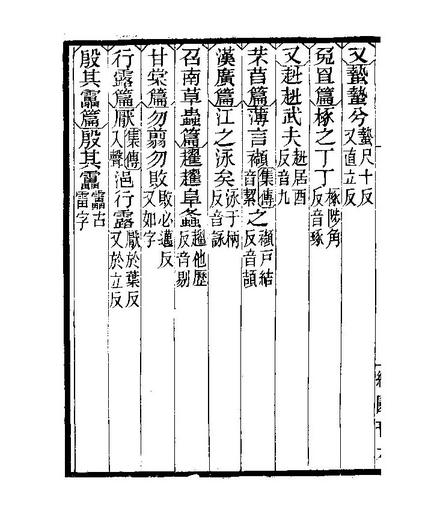 又蟄蟄兮蟄尺十反又直立反
兎罝篇椓之丁丁椓陟角反音琢
又赳赳武夫赳居酉反音九
芣苢篇薄言襭集傳反音絜之襭戶結反音頡
漢廣篇江之泳矣泳于柄反音詠
召南草蟲篇趯趯阜螽趯他歷反音剔
甘棠篇勿翦勿敗敗必邁反又如字
行露篇厭集傳入聲浥行露厭於葉反又於立反
殷其靁篇殷其靁靁古雷字